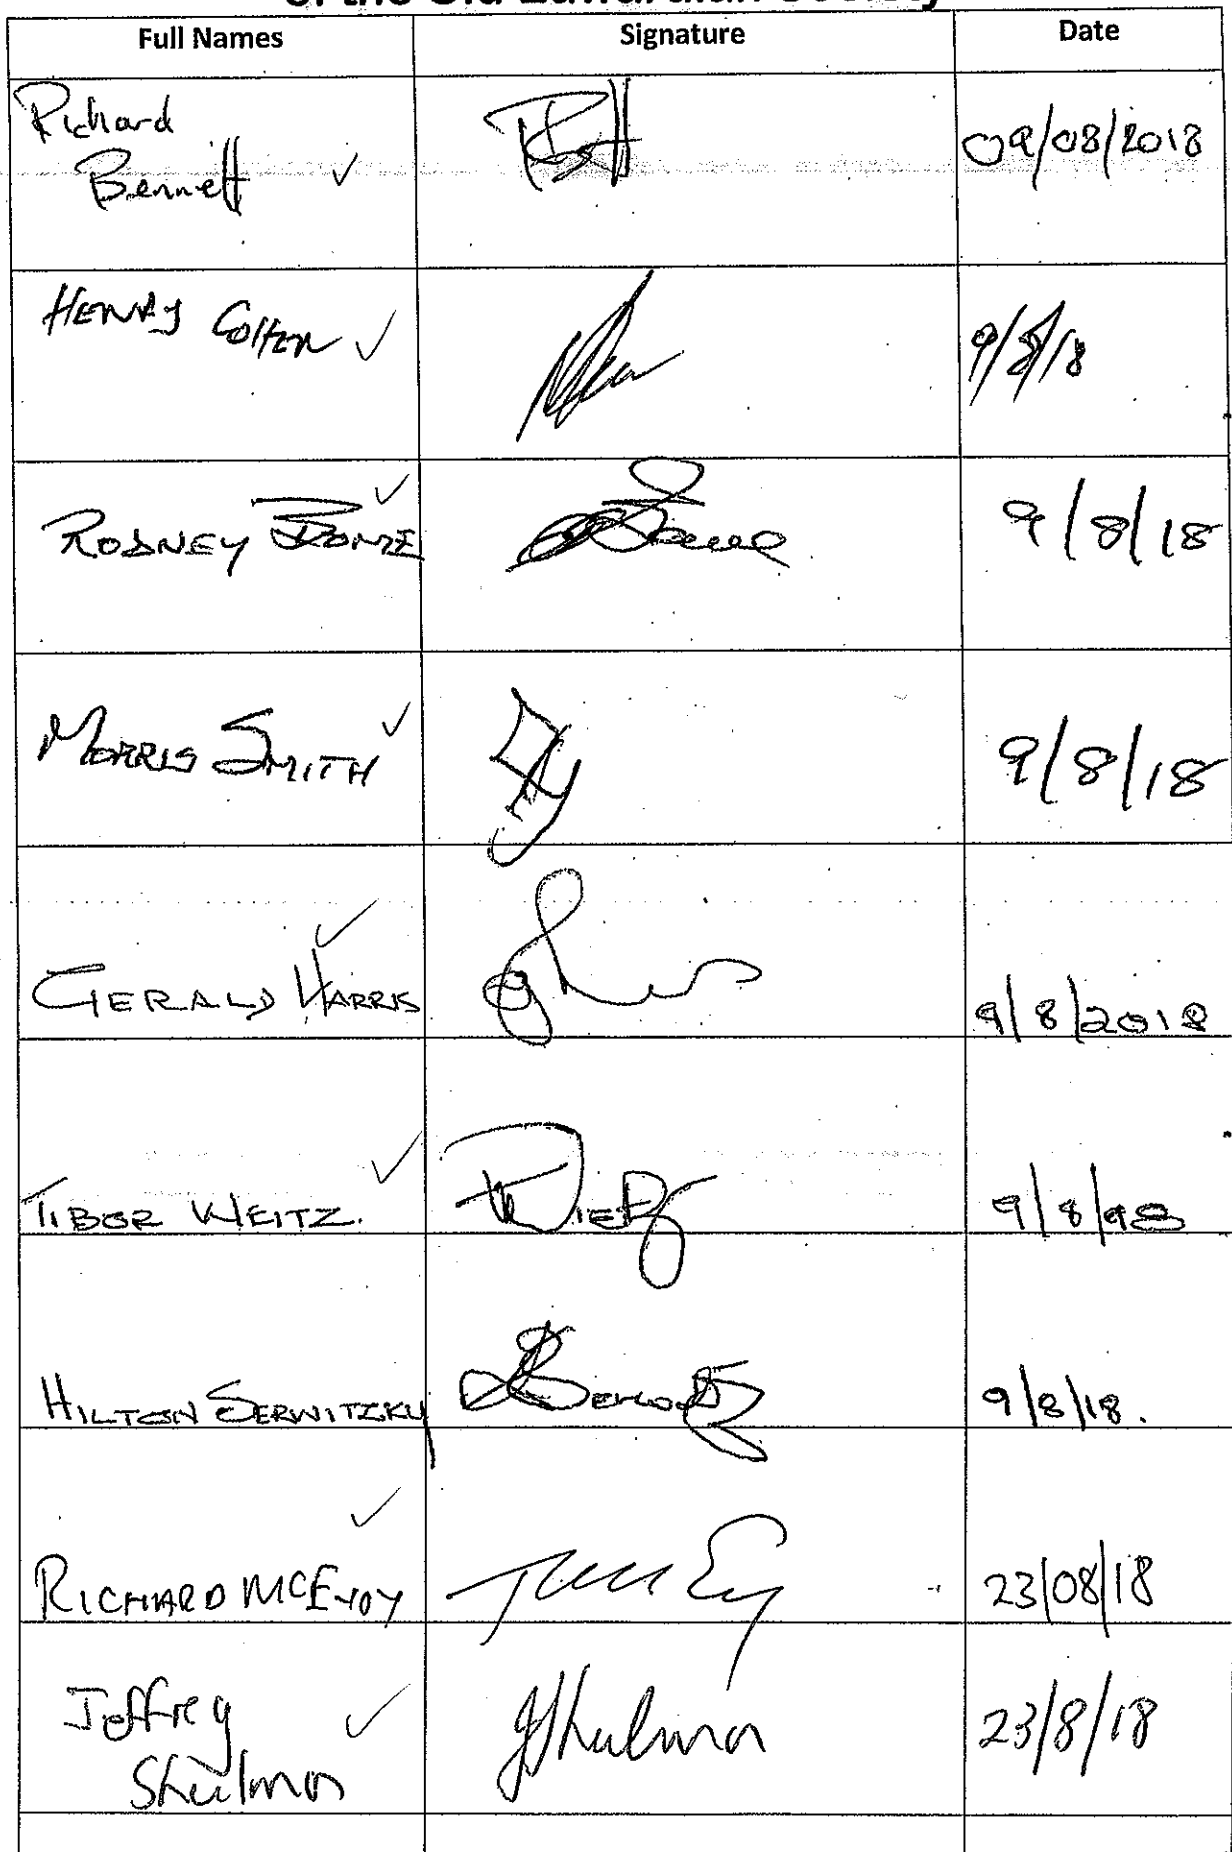 of the Old Edwardian Society
Full Names Signature Date
Richard
Bennett ✓ 09/08/2018
HENRY COHEN ✓ 9/8/18
RODNEY ✓ 9/8/18
MORRIS SMITH ✓ 9/8/18
GERALD HARRIS ✓ 9/8/2018
TIBOR WEITZ. ✓ 9/8/98
HILTON SERWITZKY 9/8/18.
RICHARD MCEVOY ✓ 23/08/18
Jeffrey
Shulman ✓ JShulman 23/8/18